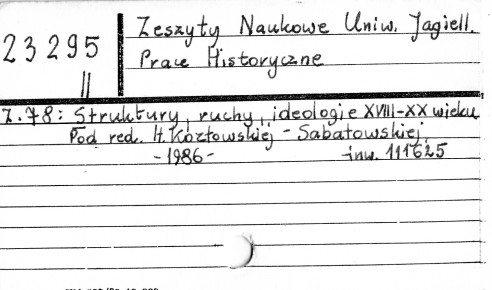 23295
II
Zeszyty Naukowe Uniw. Jagiell.
Prace Historyczne
z. 78: Struktury, ruchy, ideologie XVIII-XX wieku
Pod red. H. Kozłowskiej - Sabatowskiej,
- 1986 -
inw. 111625